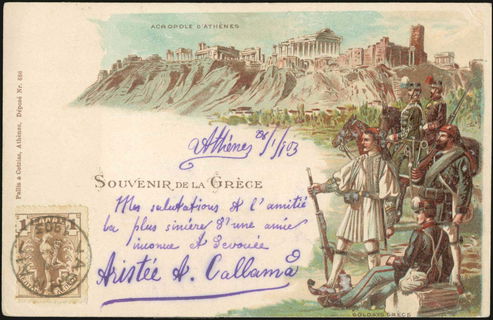 ACROPOLE D'ATHÈNES
Pallis & Cotzias, Athènes, Déposé Nr. 636
Athènes 28/1/903
SOUVENIR DE LA GRÈCE
Mes salutations et l'amitié
la plus sincère d'une amie
inconnue et devouée
Aristée A. Callama
SOLDATS GRECS